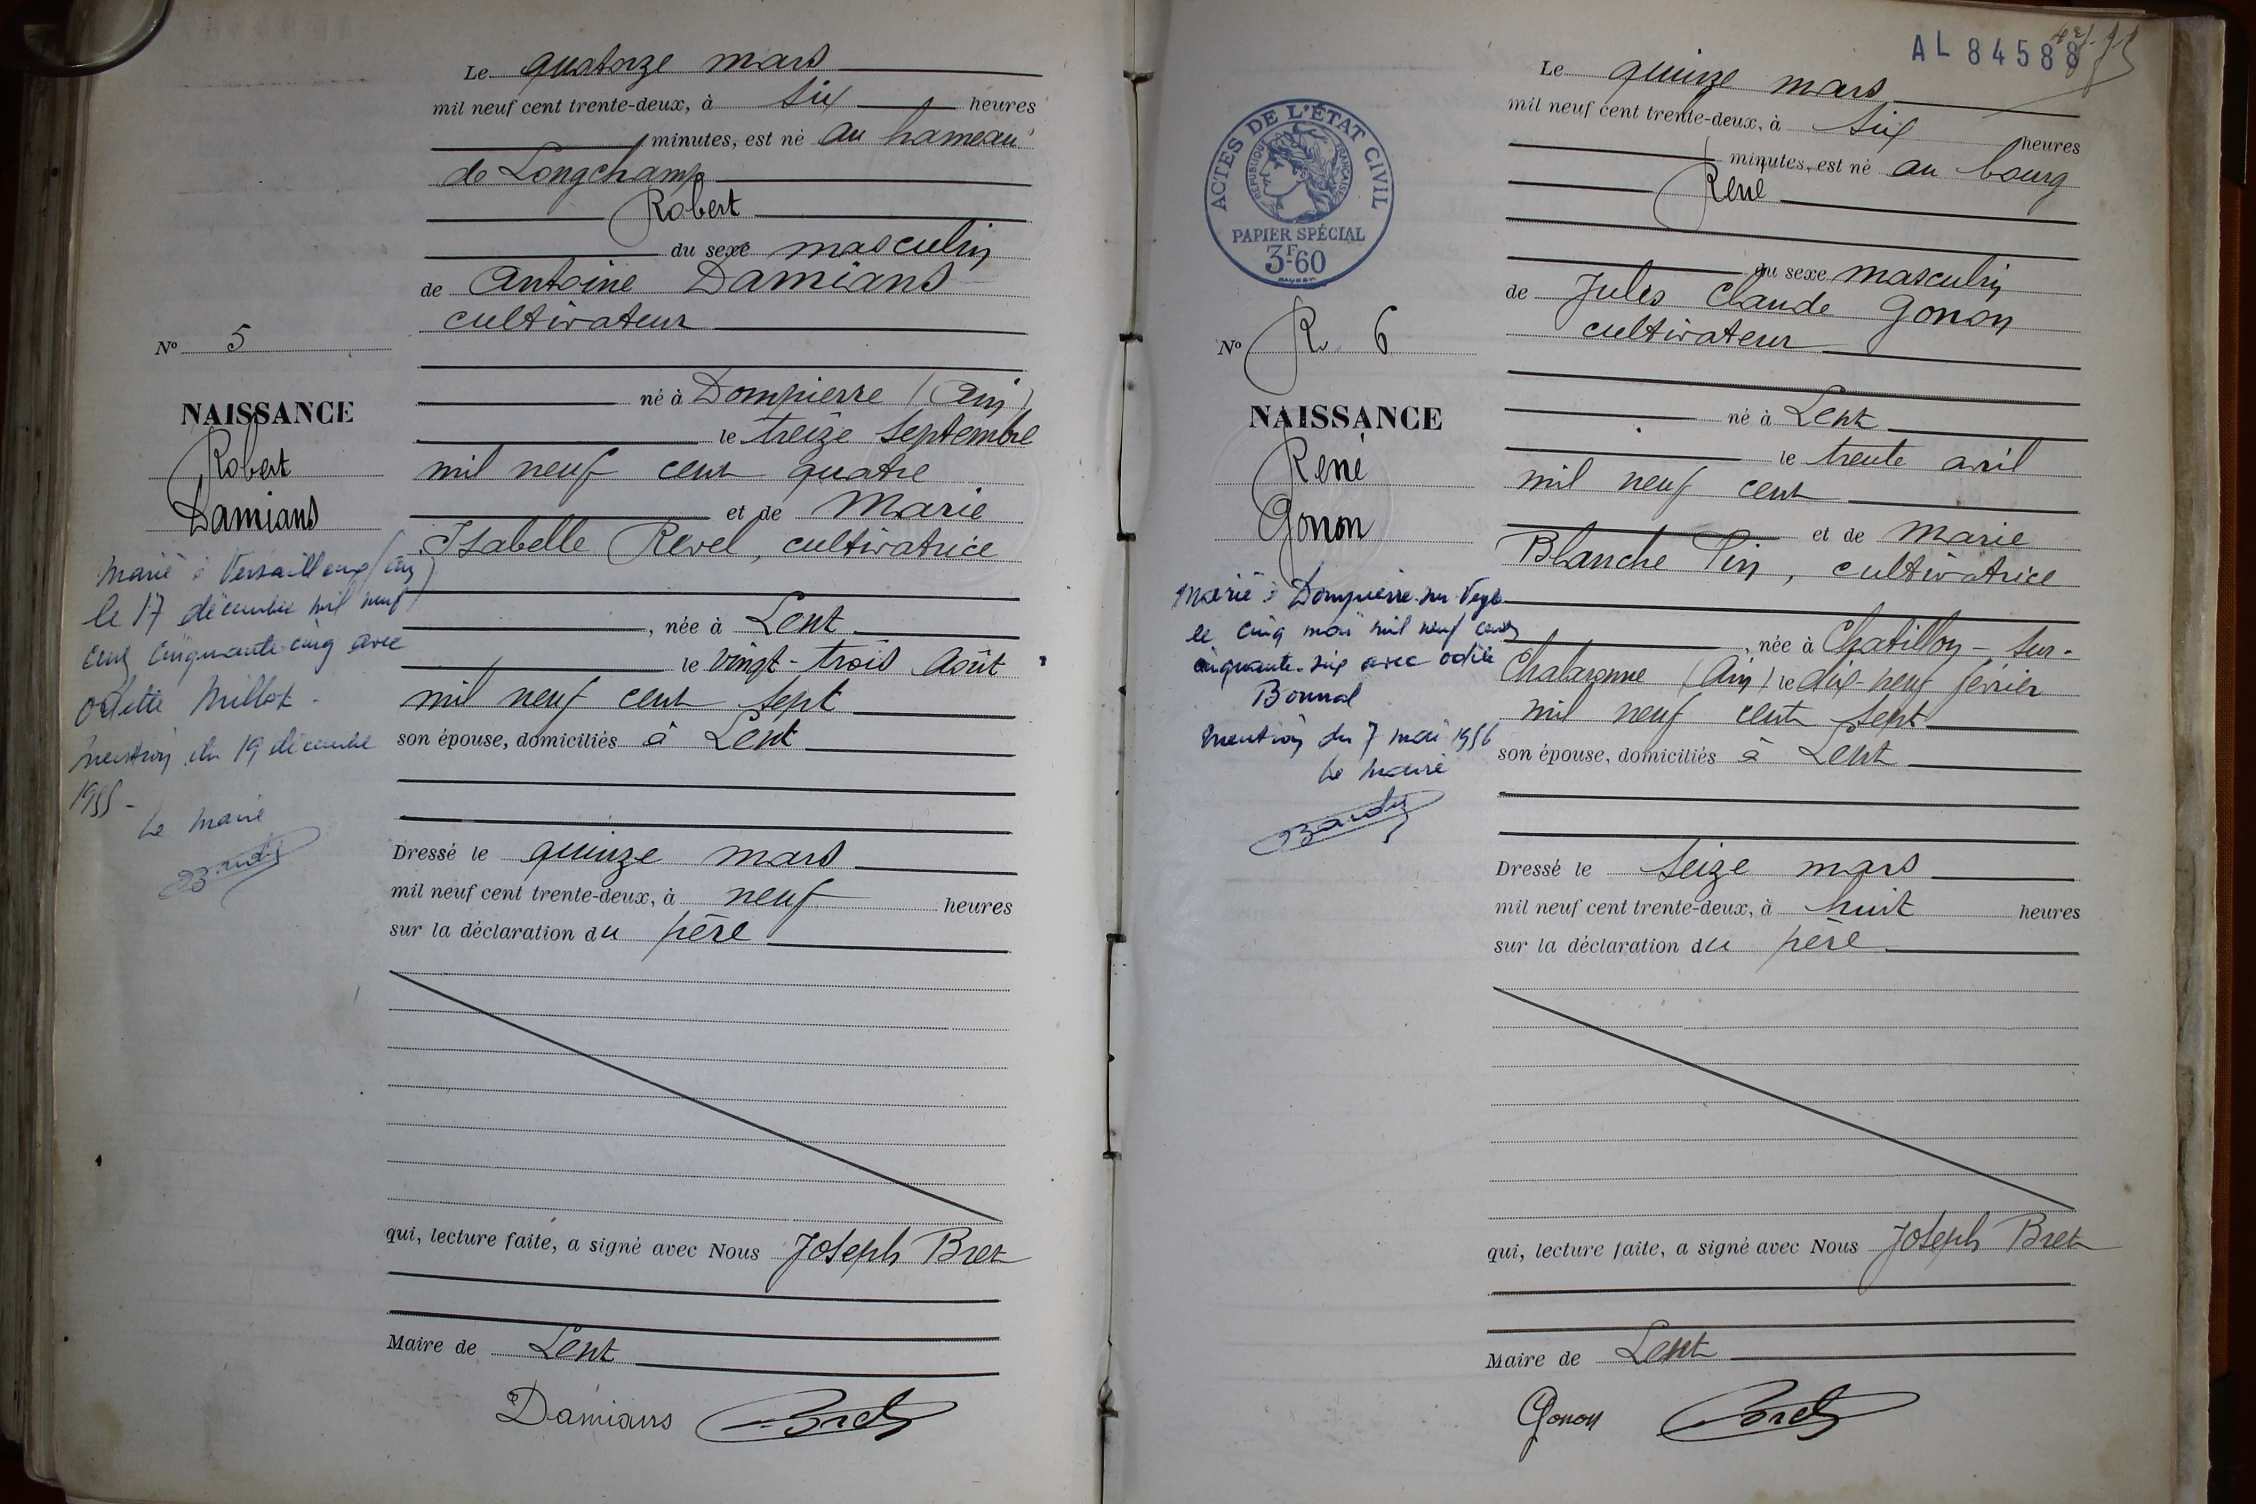 Le quatorze mars
mil neuf cent trente-deux, à six heures
minutes, est né au hameau
de Longchamp
Robert
du sexe masculin
de Antoine Damians
cultivateur
né à Dompierre (Ain)
le treize Septembre
mil neuf cent quatre
et de Marie
Isabelle Revel, cultivatrice
, née à Lent
le vingt-trois Août
mil neuf cent sept
son épouse, domiciliés à Lent
Dressé le quinze mars
mil neuf cent trente-deux, à neuf heures
sur la déclaration du père
qui, lecture faite, a signé avec Nous Joseph Bret
Maire de Lent
Damians Bret
No 5
NAISSANCE
Robert
Damians
Marié à Versailleux (Ain)
le 17 décembre mil neuf
cent cinquante-cinq avec
Odette Millet -
Mention du 19 décembre
1955 -
Le Maire
AL 84588
Le quinze mars
mil neuf cent trente-deux, à six heures
minutes, est né au bourg
René
du sexe masculin
de Jules Claude Gonon
cultivateur
né à Lent
le trente avril
mil neuf cent
et de Marie
Blanche Pin, cultivatrice
, née à Chatillon-sur-
Chalaronne (Ain) le dix-neuf février
mil neuf cent sept
son épouse, domiciliés à Lent
Dressé le seize mars
mil neuf cent trente-deux, à huit heures
sur la déclaration du père
qui, lecture faite, a signé avec Nous Joseph Bret
Maire de Lent
Gonon Bret
ACTES DE L'ÉTAT CIVIL
RÉPUBLIQUE FRANÇAISE
PAPIER SPÉCIAL
3F-60
No R 6
NAISSANCE
René
Gonon
Marié à Dompierre-sur-Veyle
le cinq mai mil neuf cent
cinquante-six avec Odile
Bonnal
Mention du 7 mai 1956
Le Maire